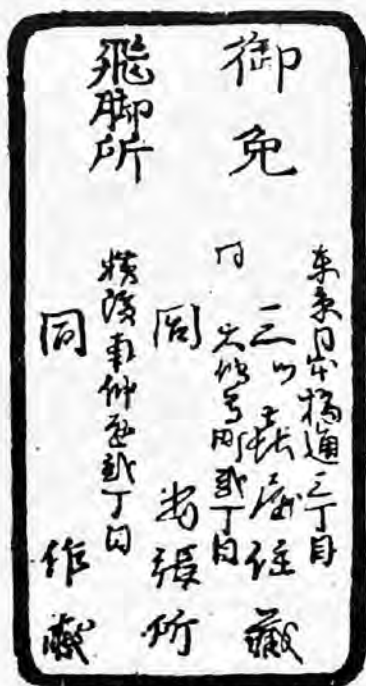 御免
飛脚所
東京日本橋通三丁目
三川屋佐蔵
同 大伝馬町弐丁目
同 出張所
横浜南仲通弐丁目
同 作蔵